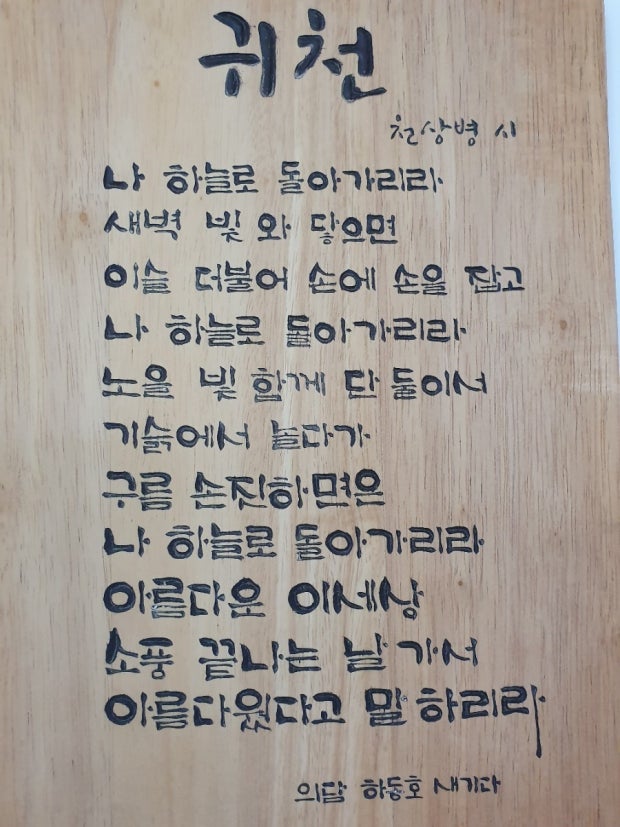 귀천
천상병 시
나 하늘로 돌아가리라
새벽 빛 와 닿으면
이슬 더불어 손에 손을 잡고
나 하늘로 돌아가리라
노을 빛 함께 단 둘이서
기슭에서 놀다가
구름 손짓하면은
나 하늘로 돌아가리라
아름다운 이세상
소풍 끝나는 날 가서
아름다웠다고 말 하리라
의담 하동호 새기다